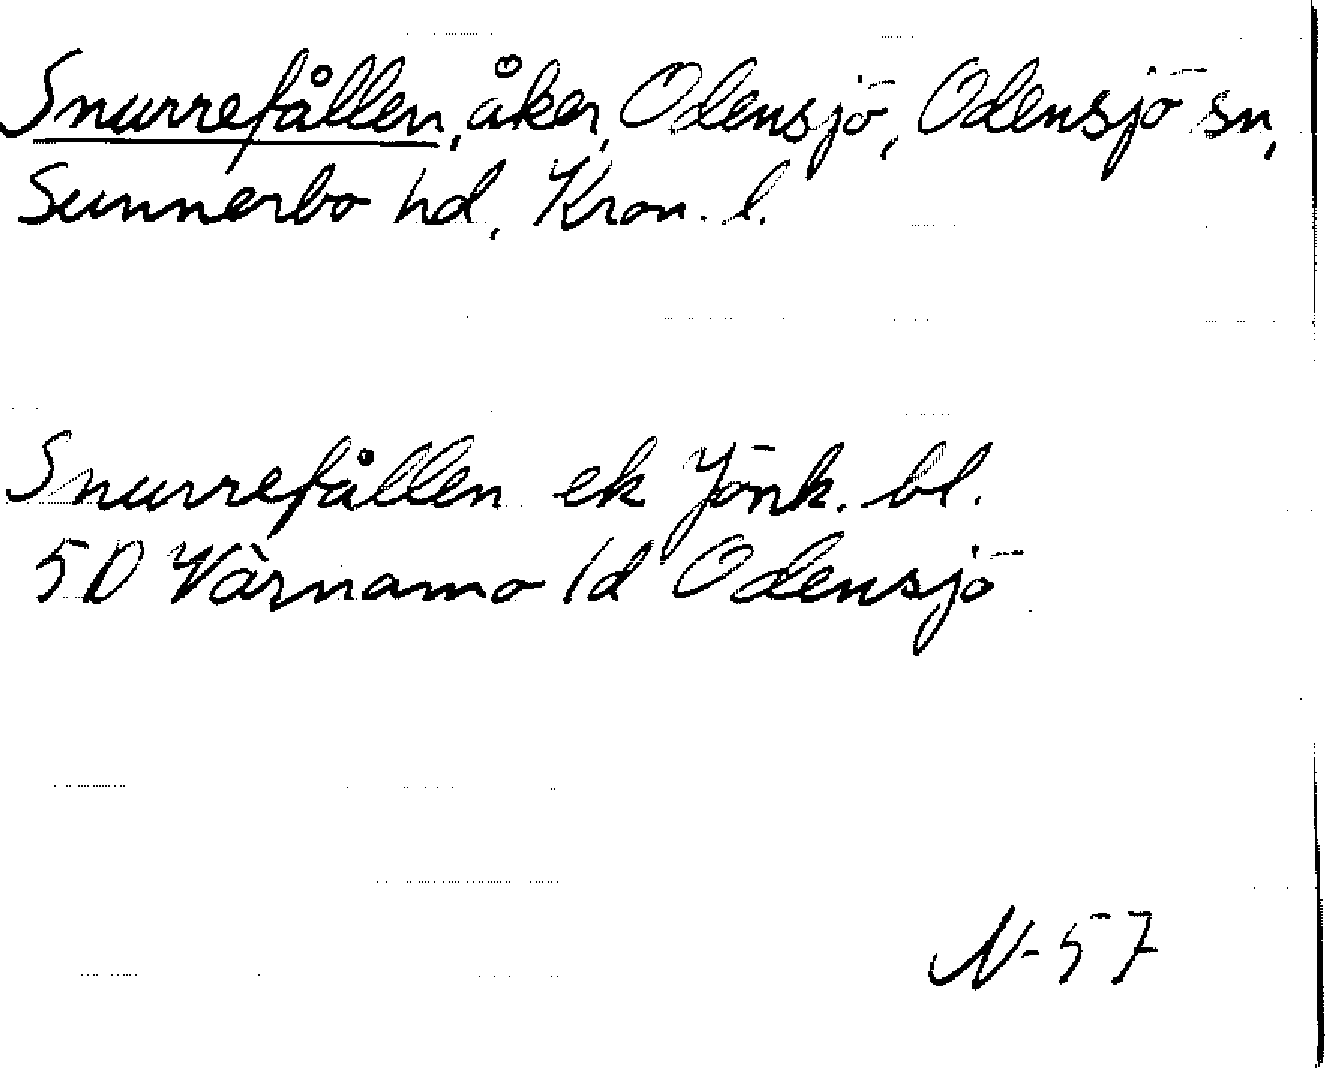 Snurrefållen, åker, Odensjö, Odensjö sn,
Sunnerbo hd, Kron. l.
Snurrefållen ek Jönk. bl.
5D Värnamo 1d Odensjö
N-57